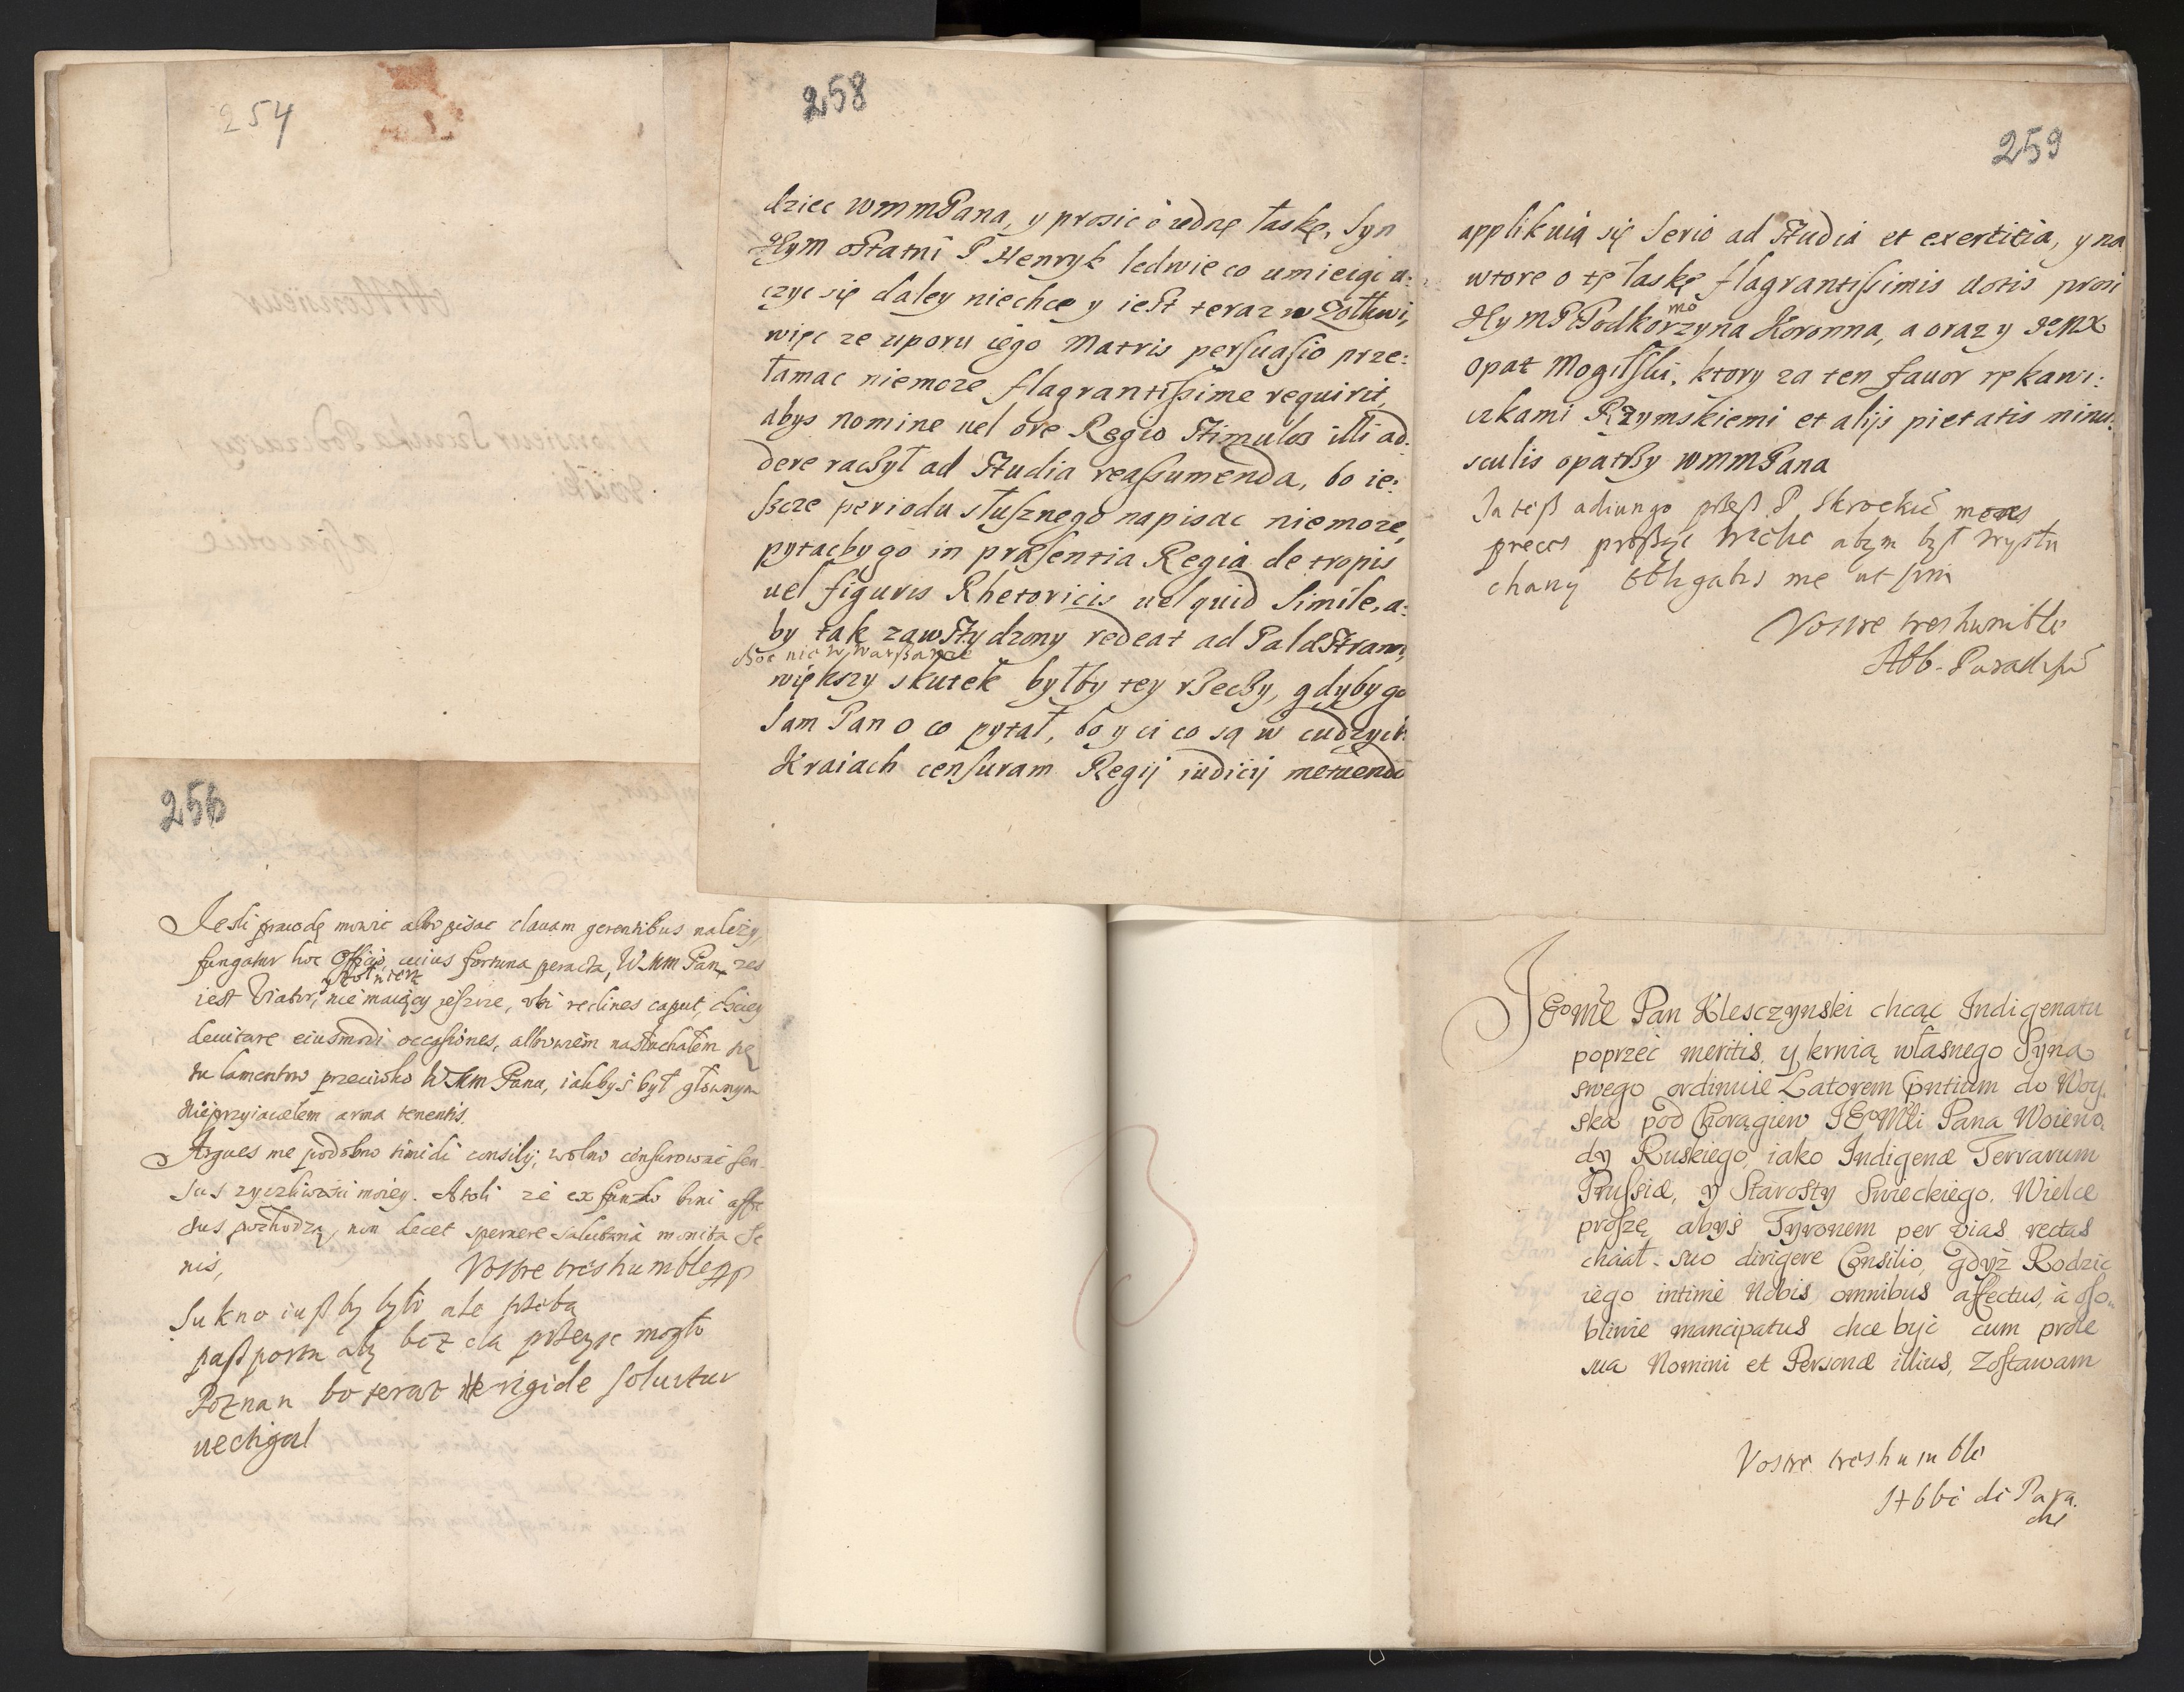 254
258
dziec WMMPana, y prosic o iednę łaskę. Syn
Hym ostatni P. Henryk ledwie co umieięc u:
czyc się daley niechce y iest teraz w Zołkwi,
więc ze uporu iego Matris persuasio prze:
łamac niemoze flagrantissime requirit,
abys nomine uel ore Regio Stimulos illi ad:
dere raczył ad Studia reassumenda, bo ie:
szcze periodu słusznego napisac niemoze,
pytacby go in præsentia Regia de tropis
uel figuris Rhetoricis uel quid Simile, a:
by tak zawstydzony redeat ad Palæstram,
choc nie w Warszawie
większy skutek byłby tey rzeczy, gdyby go
Sam Pan o co pytał, bo y ci co są w cudzych
Kraiach censuram Regij iudicij metuendo
259
applikuią się Serio ad Studia et exercitia, y na
wtore o tę łaskę flagrantissimis uotis prosi
Hy MP Podkomorzyna Koronna, a oraz y JeMX
Opat Mogilski, ktory za ten fauor rękawi:
czkami Rzymskiemi et alijs pietatis minu:
sculis opatrzy WMMPana
Ia tesz adiungo przesz P. Skrockie meas
preces proszęc wielce abym był wysłu
chany obligabis me ut sim
Vostre tres humble
Abb. Paradisi
256
Jesli prawdę mowic albo pisac clauam gerentibus należy,
fungatur hoc officio cuius fortuna peracta, WMM Pan zes
y żołnierz
iest Viator, nie maiący jeszcze, vbi reclines caput, chciey
deuitare eiusmodi occasiones, albowiem nasłuchałem się
tu lamentow przeciwko WMM Pana, iakbyś był głownym
Nieprzyiacielem arma tenentis.
Argues me podobno timidi consilij, wolno censurowac sen-
sus zyczliwosci moiey. Atoli ze ex fundo boni affe
ctus pochodzą, non decet spernere salutaria monita Se
nis,
Vostre tres humble pp
Sukno iusz by było ale trzeba
paszportu aby bez cła przeysc mogło
Poznan bo teraz rigide soluitur
uectigal
JEoMć Pan Klesczynski chcąc Indigenatu
poprzeć meritis, y krwią własnego Syna
swego ordinuie Latorem pntium do Woy.
ska pod Chorągiew JEoMści Pana Woiewo.
dy Ruskiego, iako Indigenæ Terrarum
Prussiæ, y Starosty Swieckiego. Wielce
proszę abyś Tyronem per vias rectas
chciał suo dirigere Consilio, gdyż Rodzic
iego intimè Nobis omnibus affectus, à oso..
bliwie mancipatus chce być cum prole
sua Nomini et Personæ illius, Zostawam
Vostre tres humble
Abbé di Para.
dis